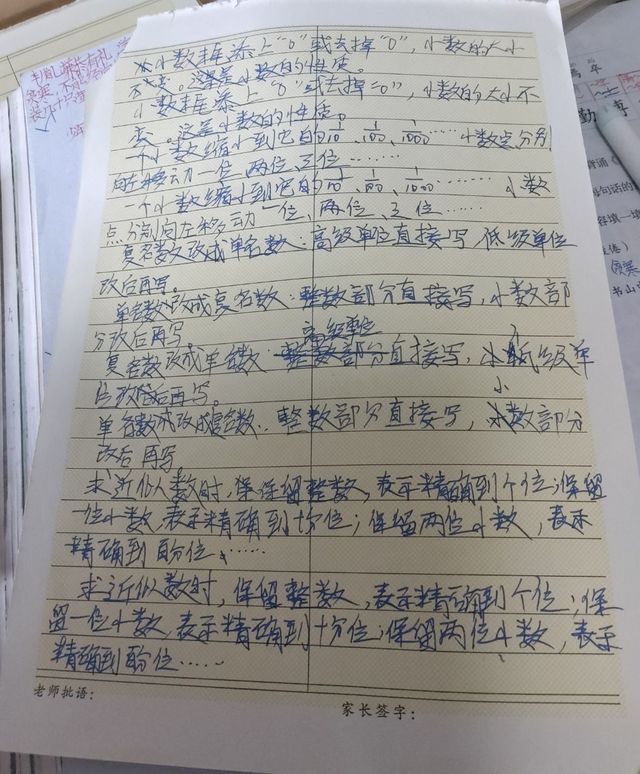 小数末添上“0”或去掉“0”，小数的大小
不变。这是小数的性质。
小数末添上“0”或去掉“0”，小数的大小不
变。这是小数的性质。
一个小数缩小到它的1/10、1/100、1/1000……小数点分别
向左移动一位、两位、三位……
一个小数缩小到它的1/10、1/100、1/1000……小数
点分别向左移动一位、两位、三位……
复名数改成单名数：高级单位直接写，低级单位
改后再写。
单名数改成复名数：整数部分直接写，小数部
分改后再写
高级单位
复名数改成单名数：部分直接写，低级单
位改后再写。
单名数改成复名数：整数部分直接写，小数部分
改后再写
求近似数时，保留整数，表示精确到个位；保留
一位小数，表示精确到十分位；保留两位小数，表示
精确到百分位……
求近似数时，保留整数，表示精确到个位；保
留一位小数，表示精确到十分位；保留两位小数，表示
精确到百分位……
老师批语：
家长签字：